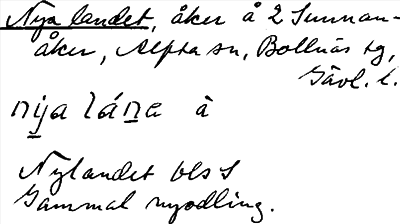 Nya landet, åker å 2 Sunnan-
åker, Alfta sn, Bollnäs tg,
Gävl. l.
nya láne à
Nylandet bls S
Gammal nyodling.